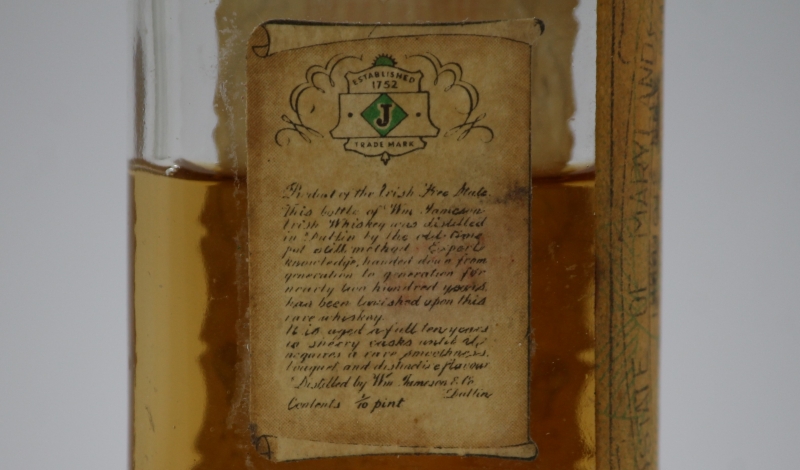 ESTABLISHED
1752
J
TRADE MARK
Product of the Irish Free State.
This bottle of Wm Jameson
Irish Whiskey was distilled
in Dublin by the old time
pot still method. Expert
knowledge, handed down from
generation to generation for
nearly two hundred years,
has been lavished upon this
rare whiskey.
It is aged a full ten years
in sherry casks until it
acquires a rare smoothness,
bouquet and distinctive flavour
Distilled by Wm. Jameson & Co.
Dublin
Contents 1/10 pint
MARYLAND